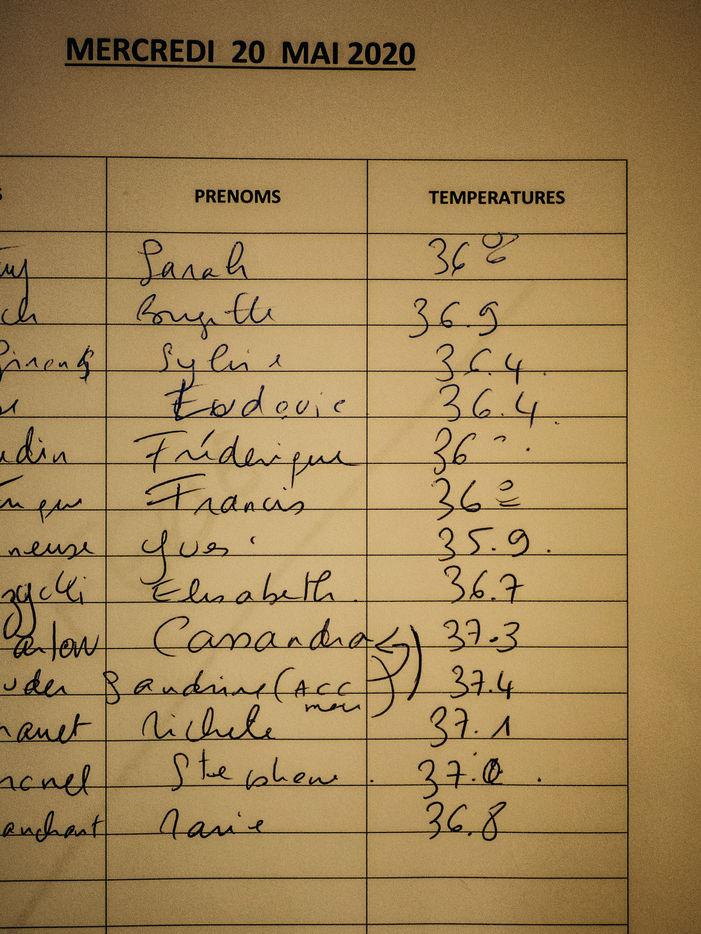 MERCREDI 20 MAI 2020
PRENOMS TEMPERATURES
Sarah 36
Brigitte 36.9
Sylvie 36.4
Ludovic 36.4
udin Fréderique 36
Francis 36
neuse Yves 35.9
zycki Elisabeth 36.7
Cassandra 37.3
uder Sandrine (ACC 37.4
anet Michele 37.1
anel Stephane 37.0
anchart Marie 36.8